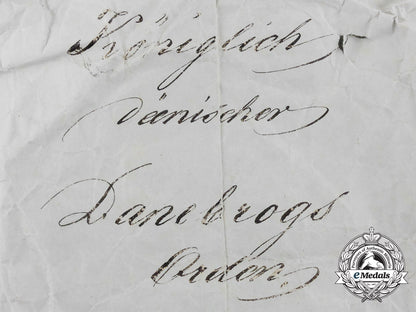 Königlich
dänischer
Danebrogs
Orden,
eMedals